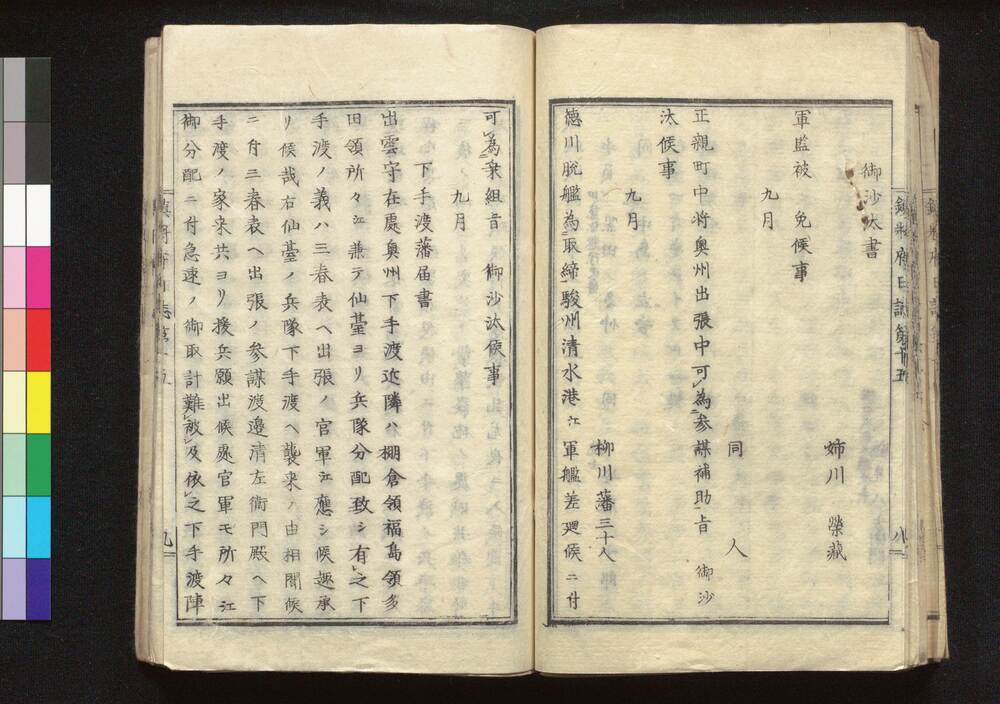 御沙汰書
姉川 榮藏
軍監被 免候事
九月
同 人
正親町中将奥州出張中可為参謀補助旨 御沙
汰候事
九月
柳川藩三十人
徳川脱艦為取締駿州清水港江軍艦差廻候ニ付
八
可為乗組旨 御沙汰候事
九月
下手渡藩届書
出雲守在處奥州下手渡近隣ハ棚倉領福島領多
田領所々江兼テ仙臺ヨリ兵隊分配致シ有之下
手渡ノ義ハ三春表ヘ出張ノ官軍江應シ候趣承
リ候哉右仙臺ノ兵隊下手渡ヘ襲来ノ由相聞候
ニ付三春表ヘ出張ノ参謀渡邉清左衛門殿ヘ下
手渡ノ家来共ヨリ援兵願出候處官軍モ所々江
御分配ニ付急速ノ御取計難被及依之下手渡陣
九
鎮将府日誌第十五